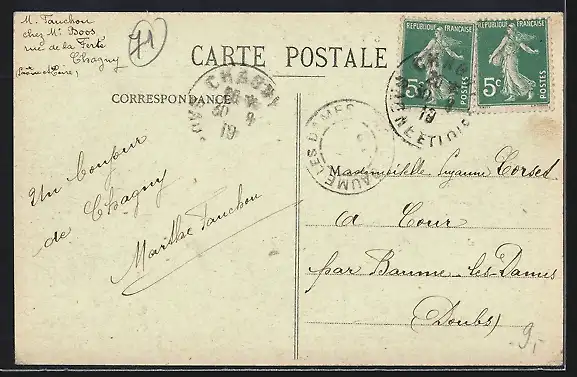 M. Fauchon
chez Mr Boos
rue de la Ferté
Chagny
(Saône et Loire)
71
CARTE POSTALE
CORRESPONDANCE
REPUBLIQUE FRANÇAISE
5c
REPUBLIQUE FRANÇAISE
5c
CHAGNY
30
19
CHAGNY
30
19
BAUME LES DAMES
Un bonjour
de Chagny
Marthe Fauchon
Mademoiselle Suzanne Corset
à Cour
par Baume-les-Dames
(Doubs)
9,-